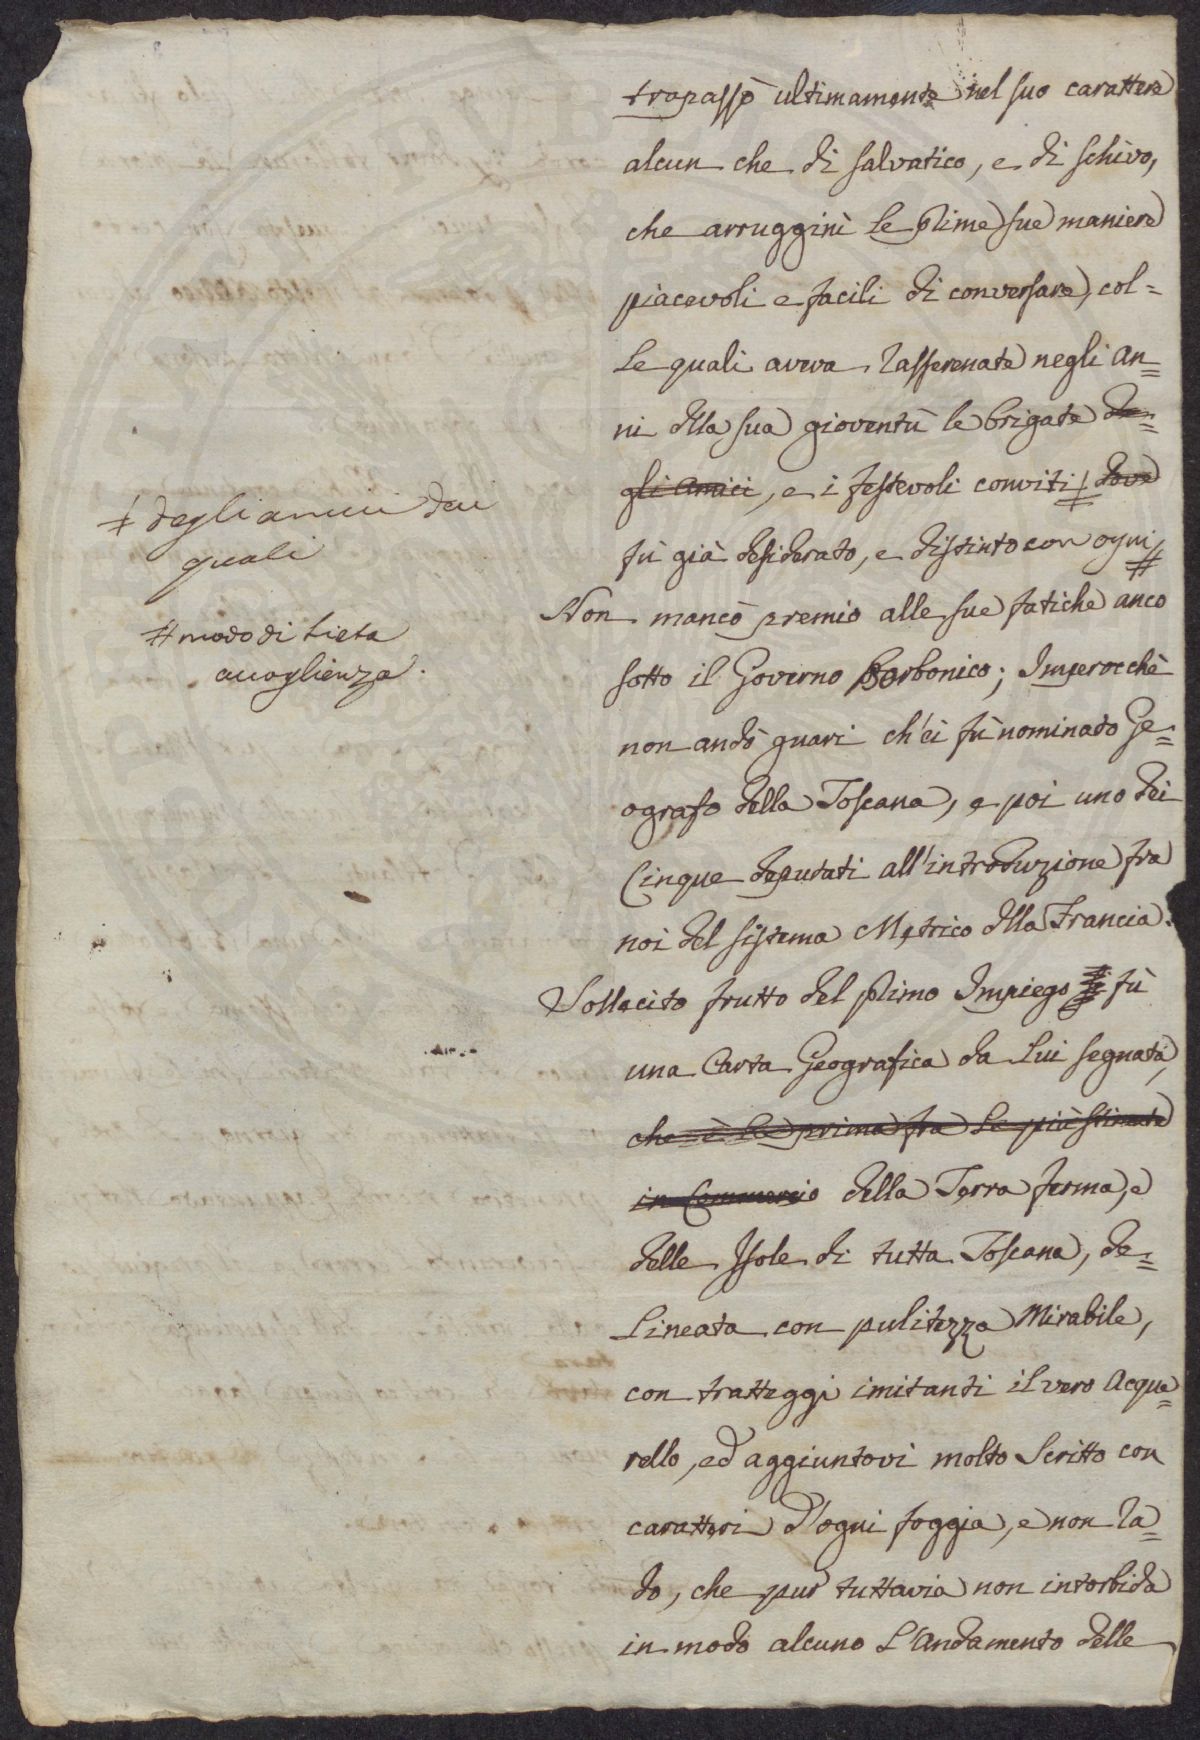 trapassò ultimamente nel suo carattere
alcun che di salvatico, e di schivo,
che arrugginì le prime sue maniere
piacevoli e facili di conversare, col=
le quali aveva rasserenate negli an=
ni della sua gioventù le brigate de=
gli amici, e i festevoli conviti ‡ dove
fù già desiderato, e distinto con ogni #
‡ degli amici dai
quali
# modo di lieta
accoglienza.
Non mancò premio alle sue fatiche anco
sotto il Governo Borbonico; Imperocchè
non andò guari ch'ei fù nominato Ge=
ografo della Toscana, e poi uno dei
Cinque deputati all'introduzione fra
noi del sistema Metrico della Francia.
Sollecito frutto del primo Impiego fù
una Carta Geografica da lui segnata,
che è la prima fra le più stimate
in Commercio della Terra ferma, e
delle Isole di tutta Toscana, de=
lineata con pulitezza Mirabile,
con tratteggi imitanti il vero Acque=
rello, ed aggiuntovi molto Scritto con
caratteri d'ogni foggia, e non ra=
do, che pur tuttavia non intorbida
in modo alcuno l'andamento delle